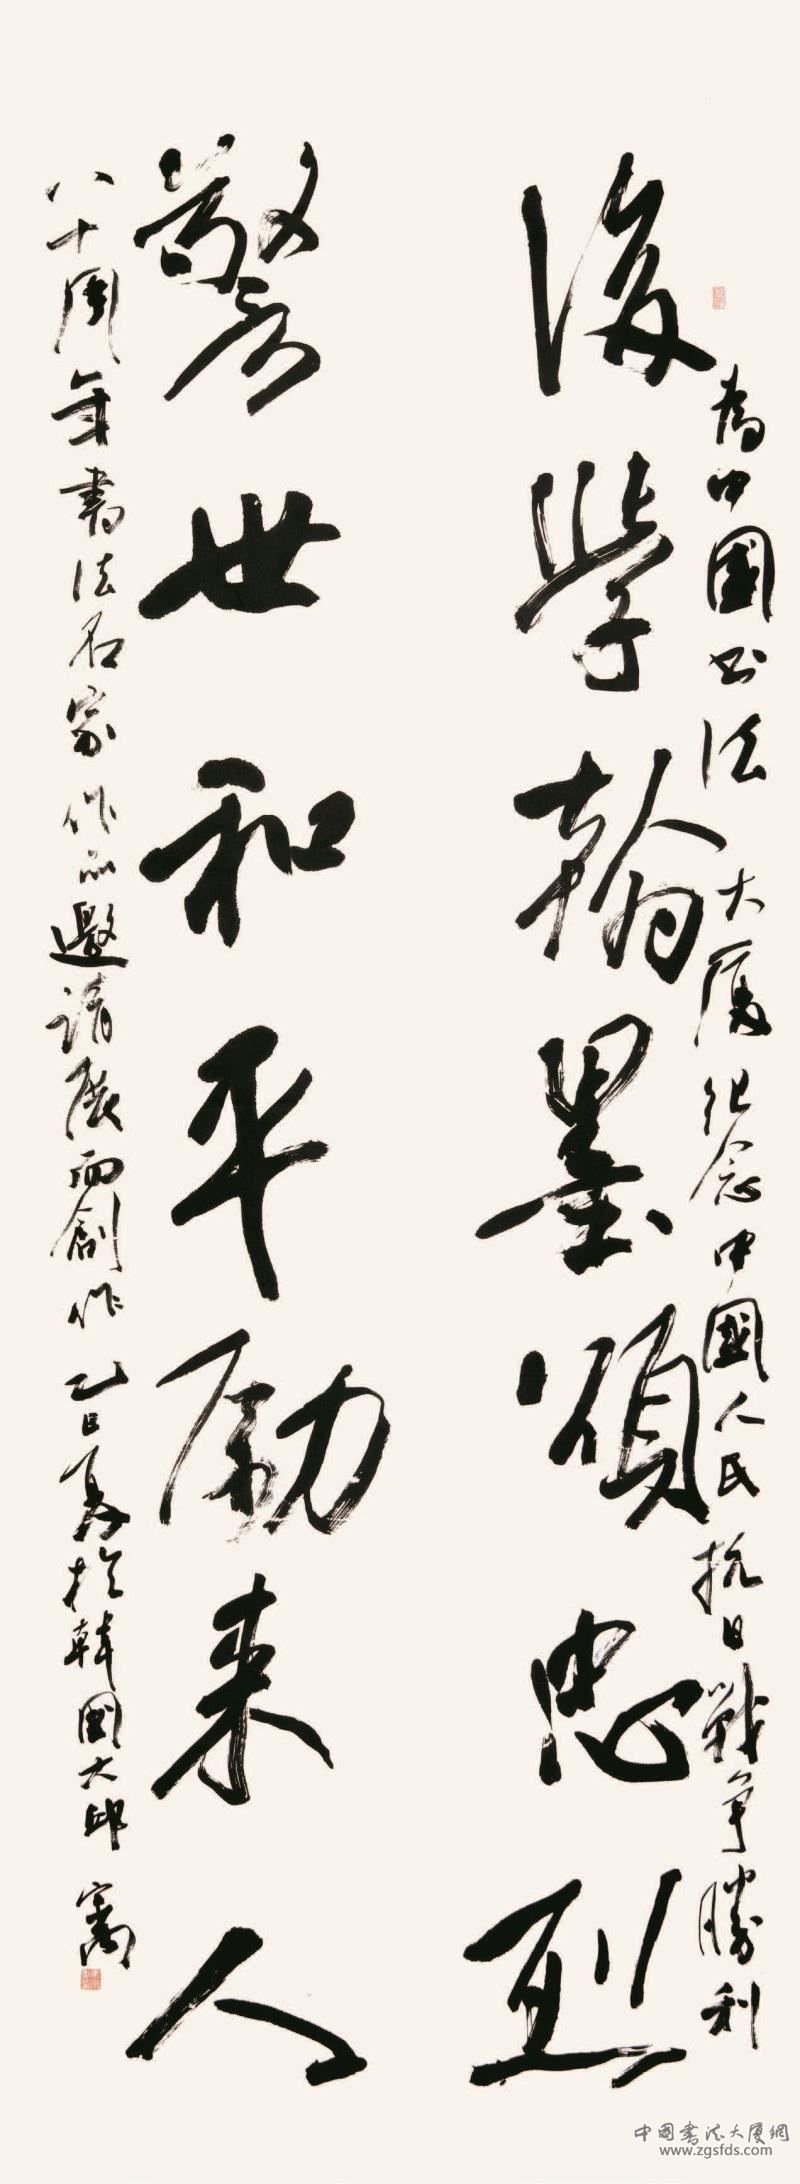 為中國书法大厦纪念中國人民抗日戰争勝利
後學翰墨頌忠烈
警世和平励来人
八十周年書法名家作品邀請展而創作 乙巳夏於韓國大邱
中国書法大厦網
www.zgsfds.com